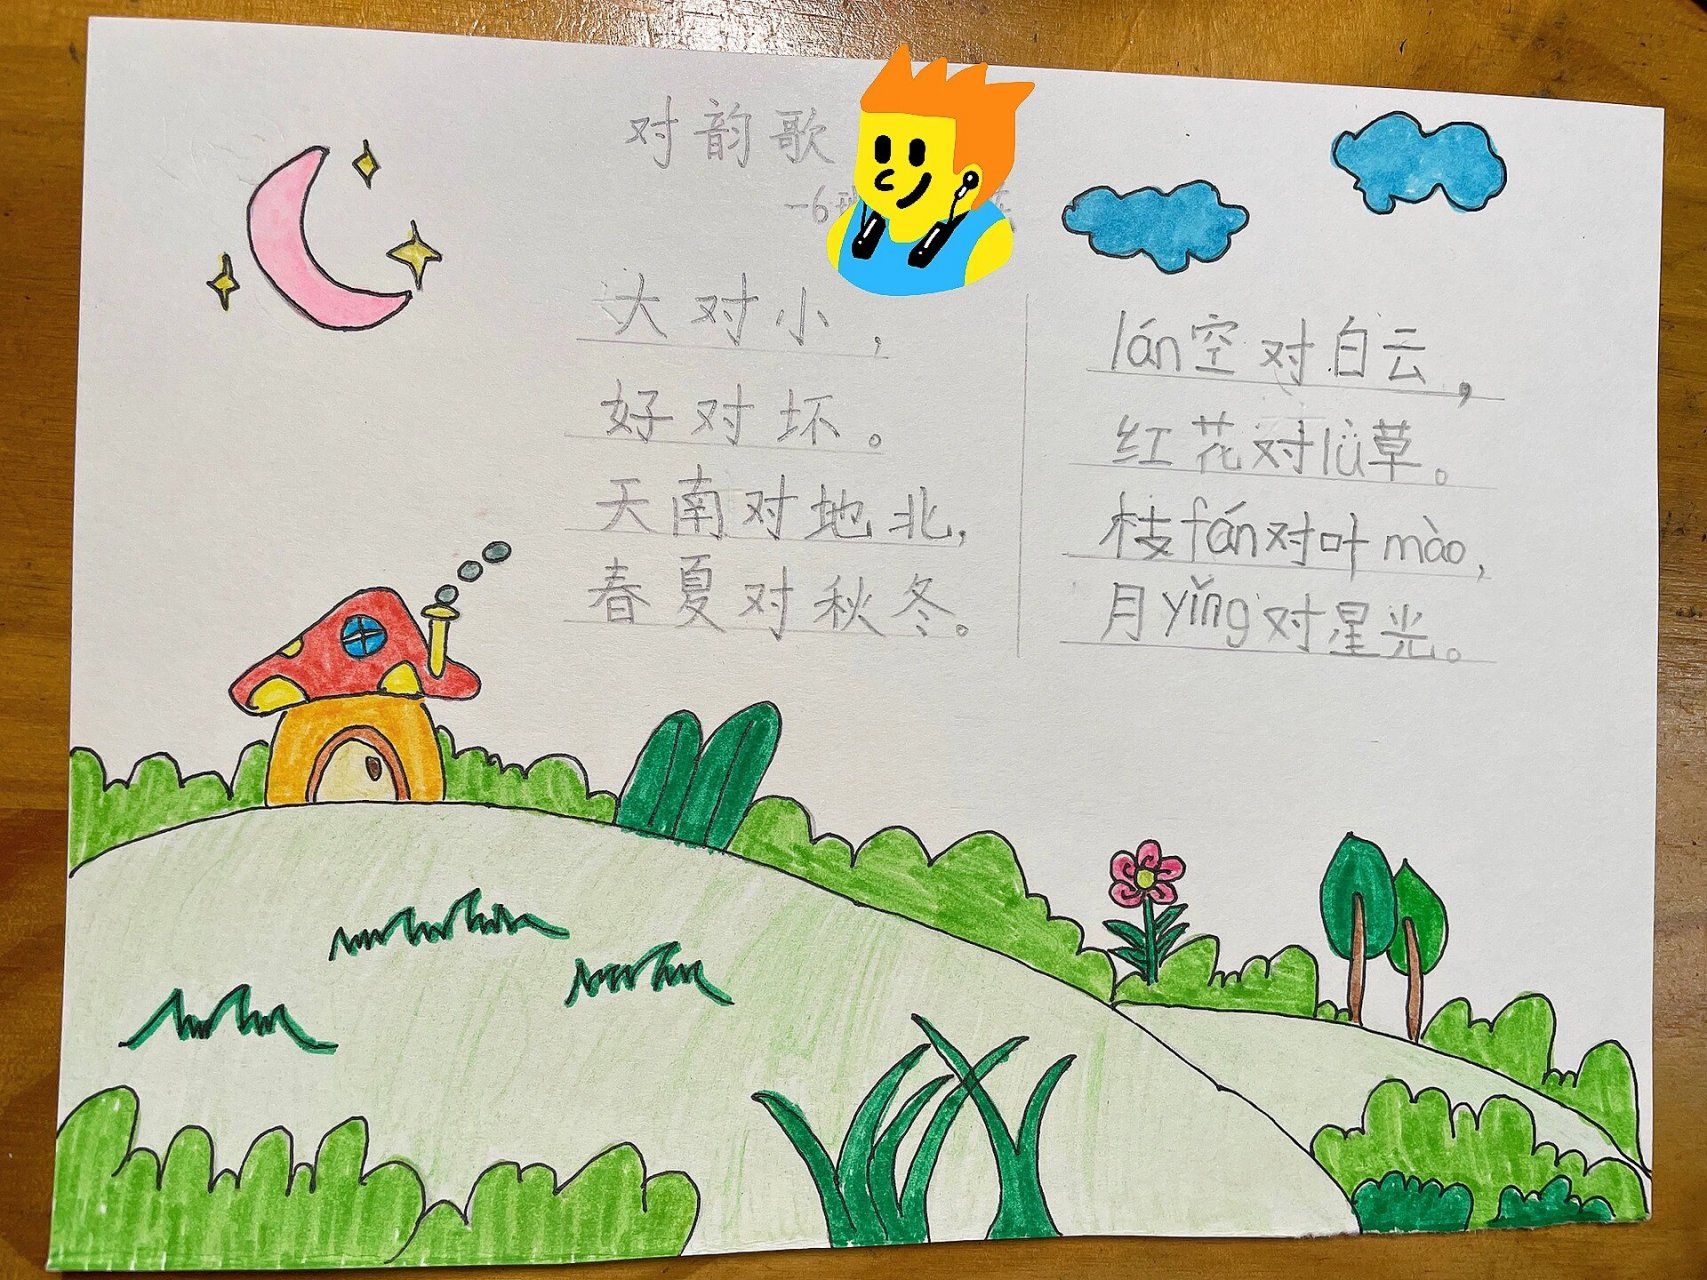 对韵歌
大对小，
好对坏。
天南对地北，
春夏对秋冬。
lán空对白云，
红花对lǜ草。
枝fán对叶mào，
月yǐng对星光。